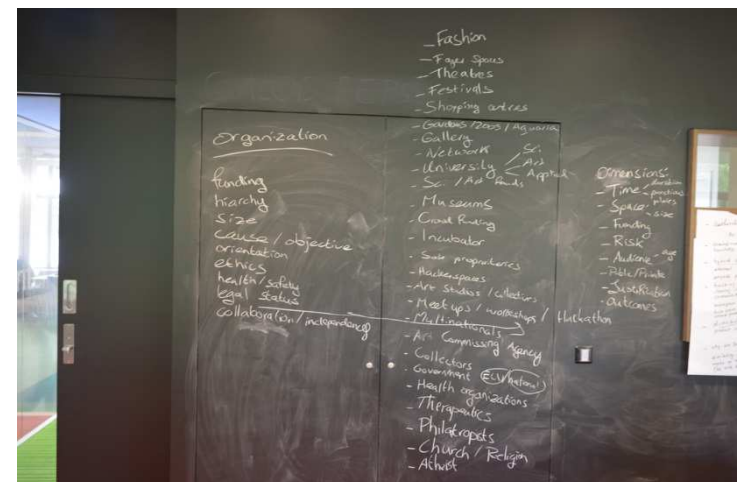 organization
funding
hiarchy
size
cause / objective
orientation
ethics
health/safety
legal status
collaboration/independence
- Fashion
- Theatres
- Festivals
- Shopping
- Gardens / Zoos / Aquaria
- Gallery
- Network
- University
Sci.
Art
Applied
- Sci. / Art
- Museums
- Crowd Funding
- Incubator
- Hackerspaces
- Art Studios / collectives
- Meetups / workshops / Hackathon
- Multinationals
- Art Commissing Agency
- Collectors
- Government (EU/National)
- Health organizations
- Therapeutics
- Philatropsts
- Church / Religion
- Atheist
Dimensions:
- Time
- Space
- size
- Funding
- Risk
- Audience - age
- Public/Private
- Justification
- outcomes